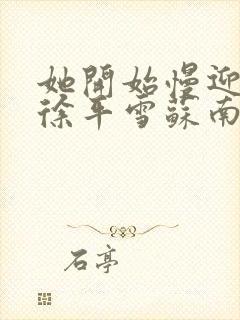 她開始慢迎
徐平雪蘇南
石亭